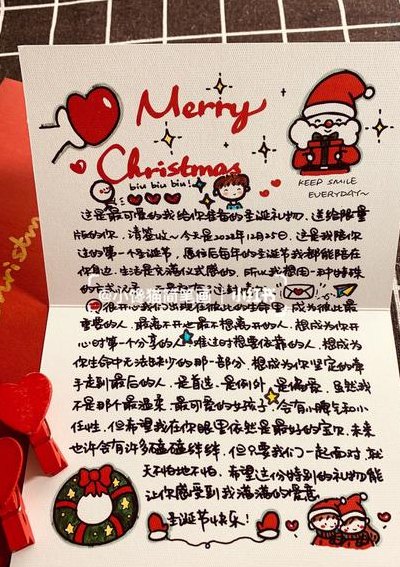 Merry
Christmas
biu biu biu!
KEEP SMILE
EVERYDAY~
这是最可爱的我给你准备的圣诞礼物，送给限量
版的你，请签收~今天是2022年12月25日，这是我陪你
过的第一个圣诞节，愿往后每年的圣诞节我都能陪在
你身边，生活是充满仪式感的，所以我想用一种特殊
@小馋猫简笔画 小红书
很开心我们出现在彼此的生命里，成为彼此最
重要的人，最离不开也最不想离开的人，想成为你开
心时第一个分享的人，难过时想要依靠的人，想成为
你生命中无法缺少的那一部分，想成为你坚定的牵
手走到最后的人，是首选，是例外，是偏爱，虽然我
不是那个最温柔，最可爱的女孩子，会有小脾气和小
任性，但希望我在你眼里依然是最好的宝贝，未来
也许会有许多磕磕绊绊，但只要我们一起面对，就
天不怕地不怕，希望这份特别的礼物能
让你感受到我满满的爱意
圣诞节快乐！